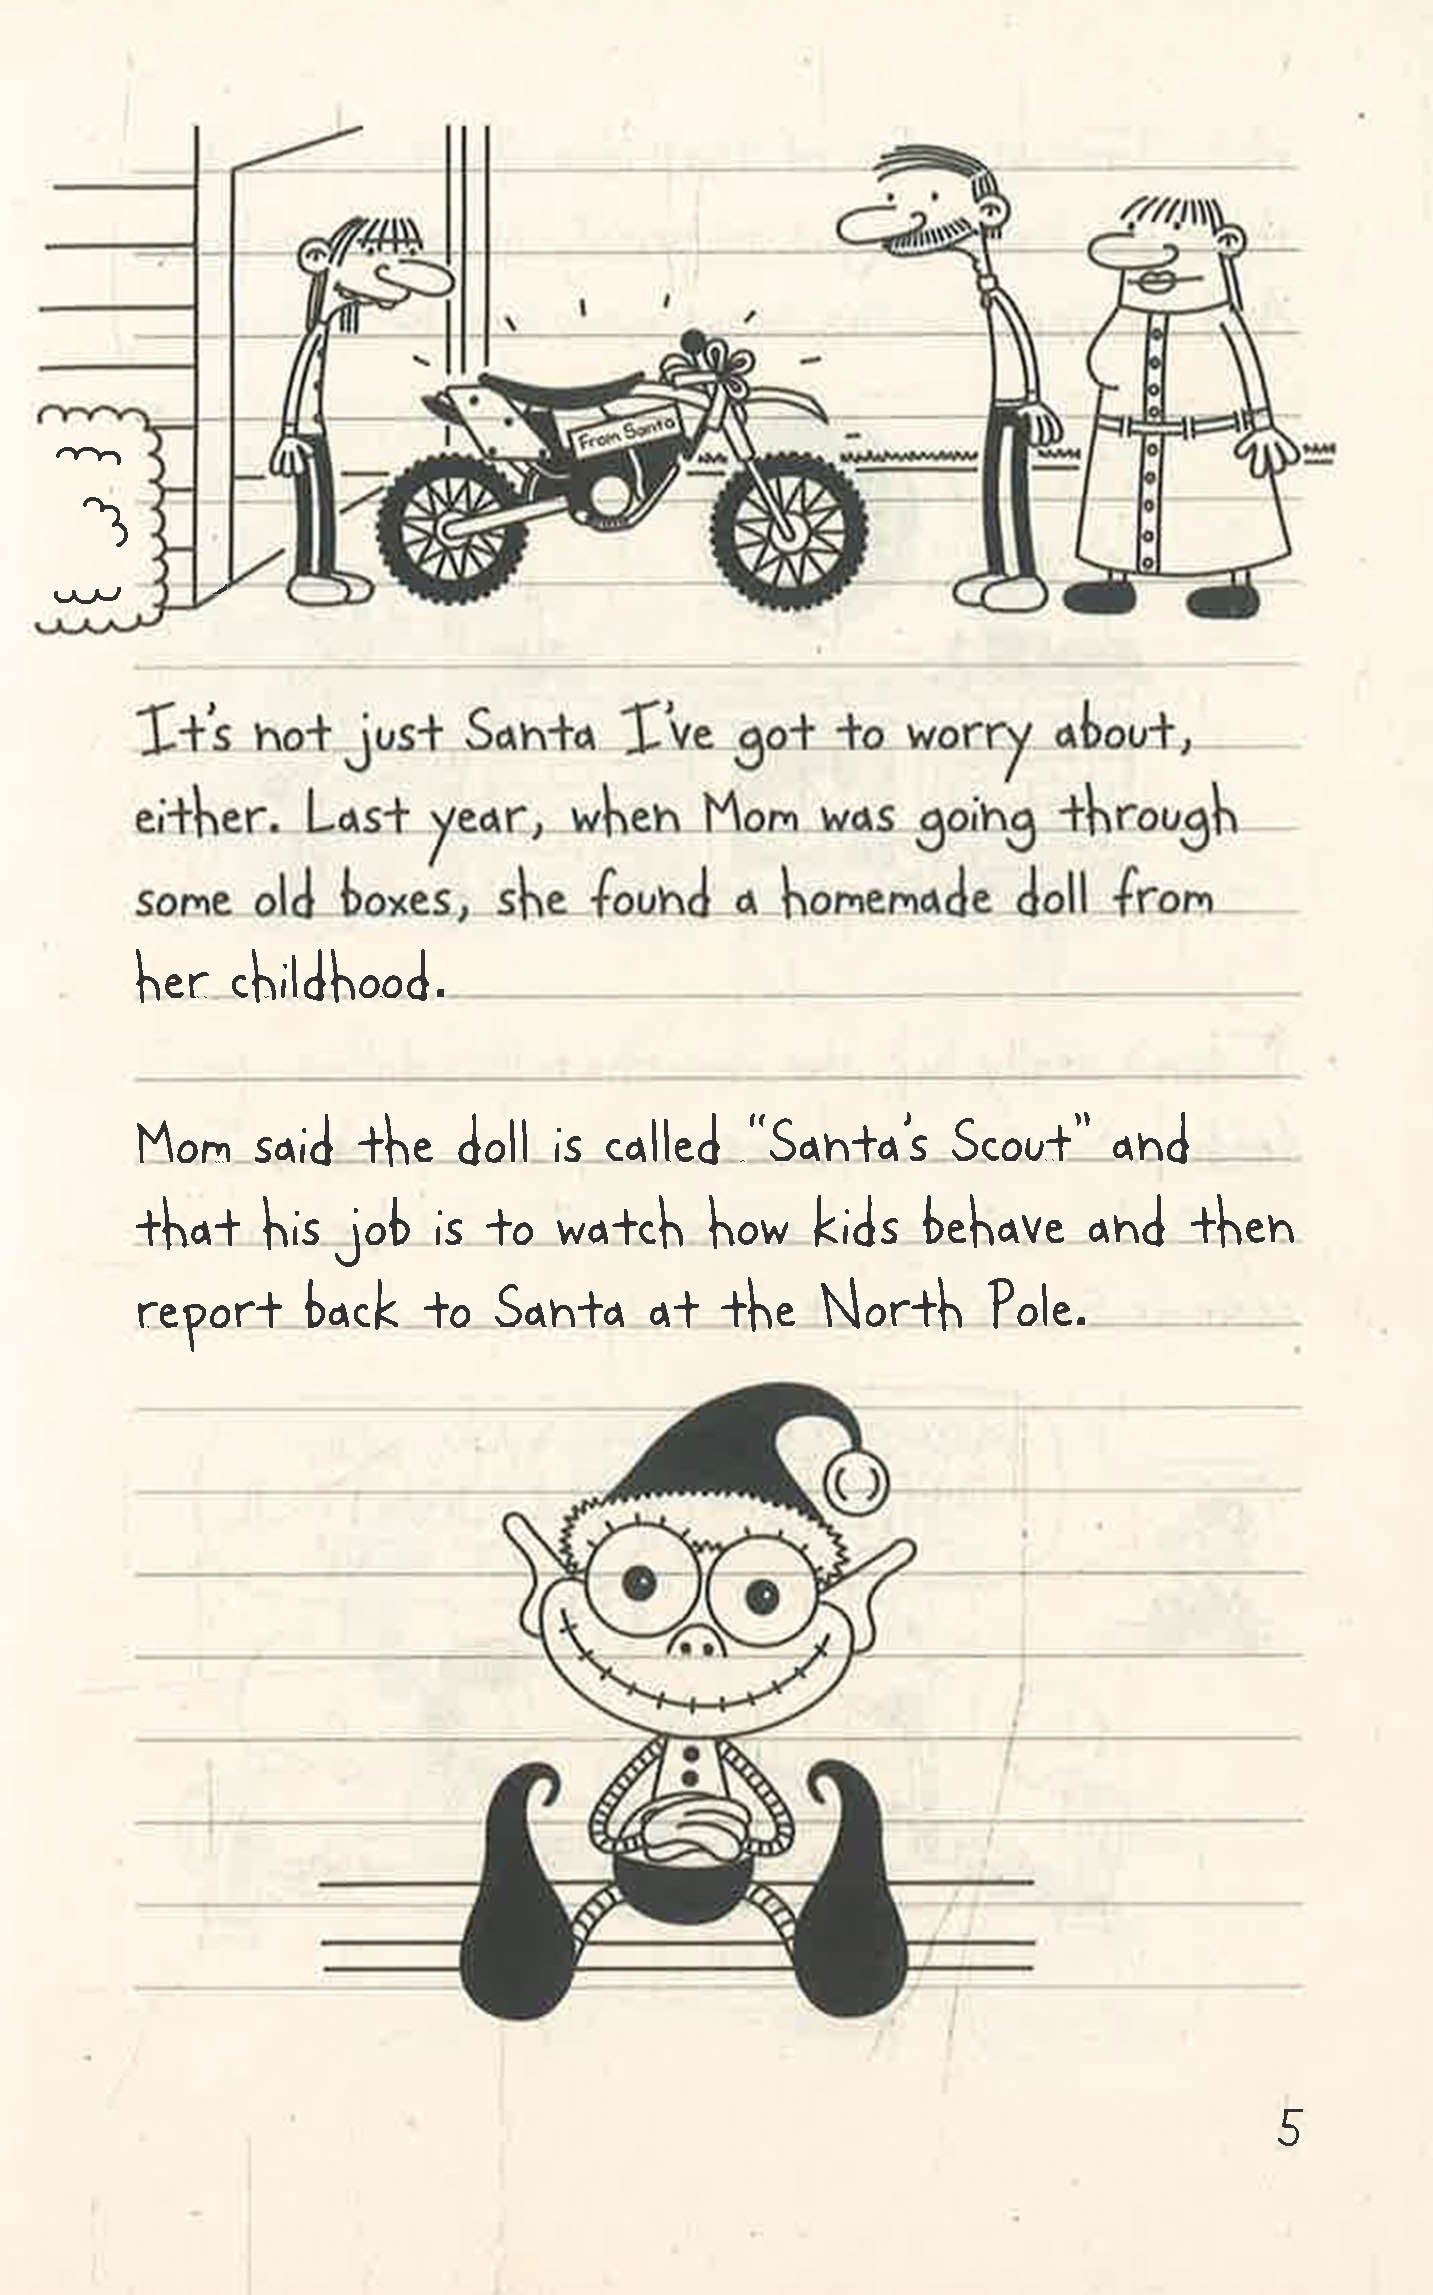 From Santa
It's not just Santa I've got to worry about,
either. Last year, when Mom was going through
some old boxes, she found a homemade doll from
her childhood.
Mom said the doll is called "Santa's Scout" and
that his job is to watch how kids behave and then
report back to Santa at the North Pole.
5